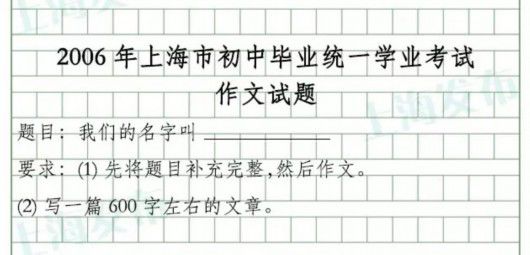 上海发布
2006 年上海市初中毕业统一学业考试
作文试题
上海发布
题目：我们的名字叫 ____________
要求：(1) 先将题目补充完整,然后作文。
(2) 写一篇 600 字左右的文章。
上海发布